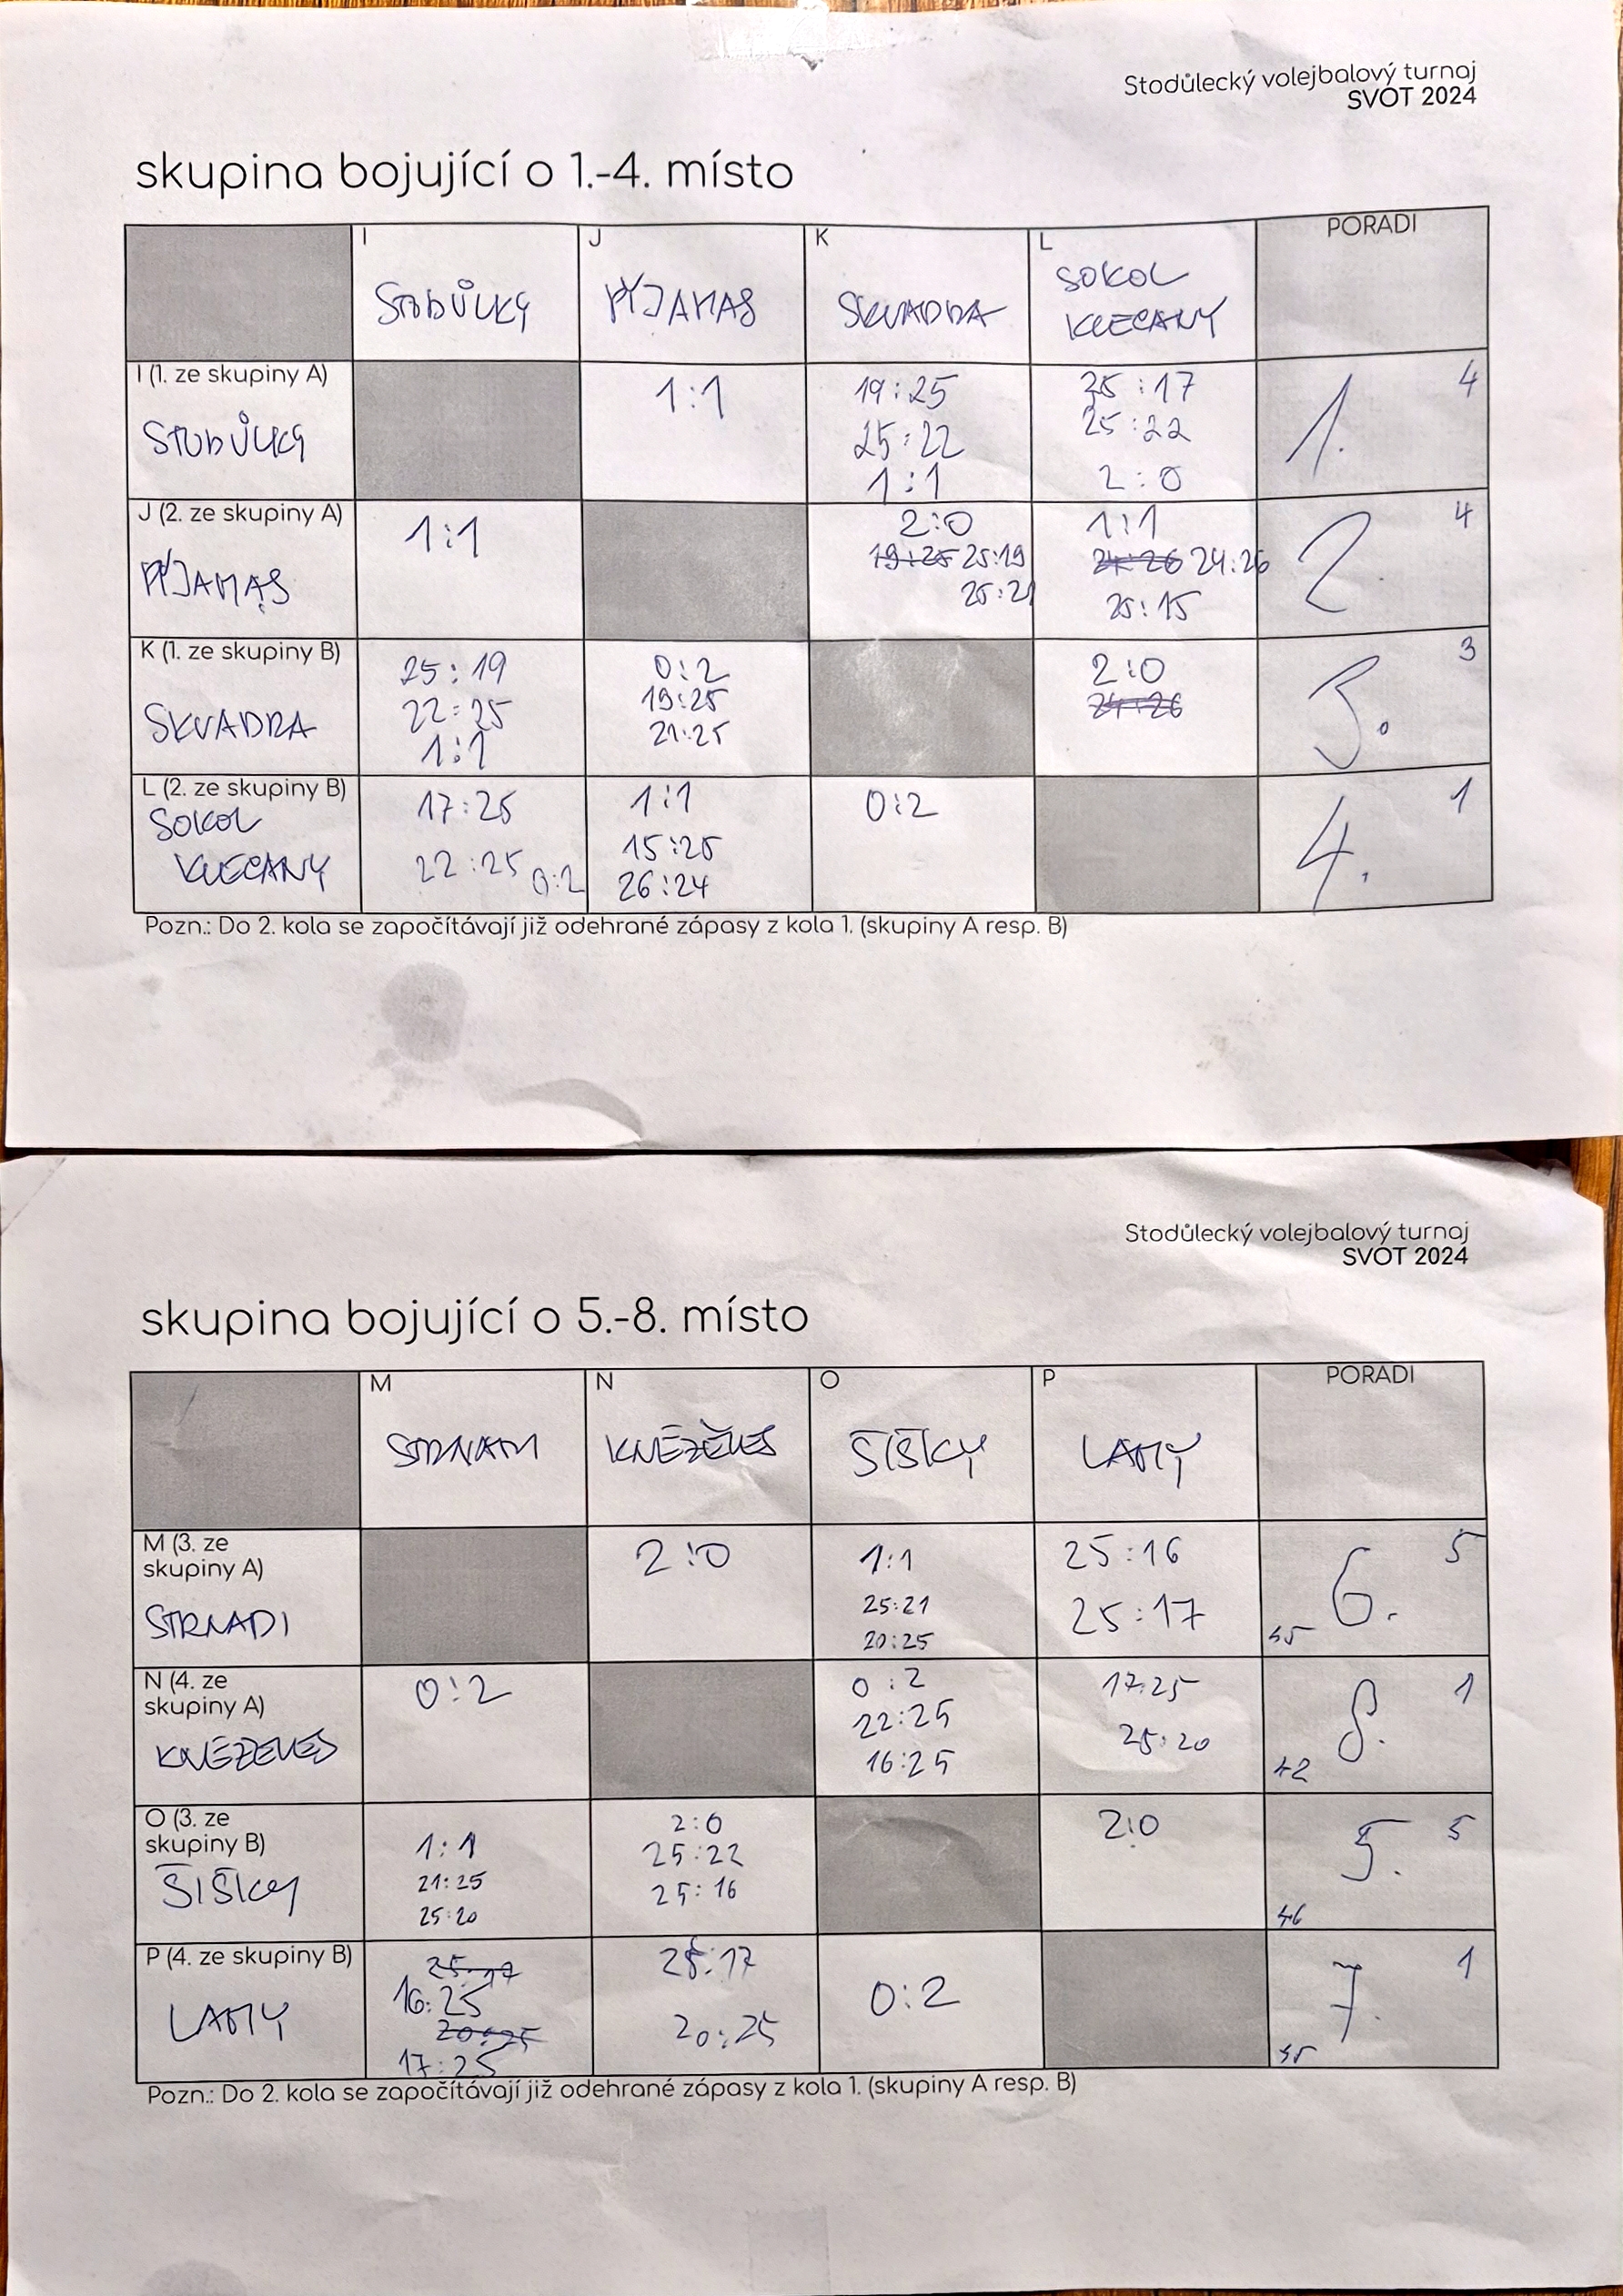 Stodůlecký volejbalový turnaj
SVOT 2024
skupina bojující o 1.-4. místo
I
J
K
L
PORADI
STODŮLKY
PYJAMAS
SKVADRA
SOKOL
KLECANY
I (1. ze skupiny A)
STODŮLKY
1:1
19:25
25:22
1:1
25:17
25:22
2:0
1.
4
J (2. ze skupiny A)
PYJAMAS
1:1
2:0
19:25 25:19
25:21
1:1
24:26 24:26
25:15
2.
4
K (1. ze skupiny B)
SKVADRA
25:19
22:25
1:1
0:2
19:25
21:25
2:0
24:26
3.
3
L (2. ze skupiny B)
SOKOL
KLECANY
17:25
22:25 0:2
1:1
15:25
26:24
0:2
4.
1
Pozn.: Do 2. kola se započítávají již odehrané zápasy z kola 1. (skupiny A resp. B)
Stodůlecký volejbalový turnaj
SVOT 2024
skupina bojující o 5.-8. místo
M
N
O
P
PORADI
STRNADI
KNĚŽEVES
ŠIŠKY
LAMY
M (3. ze
skupiny A)
STRNADI
2:0
1:1
25:21
20:25
25:16
25:17
6.
5
45
N (4. ze
skupiny A)
KNĚŽEVES
0:2
0:2
22:25
16:25
17:25
25:20
8.
1
42
O (3. ze
skupiny B)
ŠIŠKY
1:1
21:25
25:20
2:0
25:22
25:16
2:0
5.
5
46
P (4. ze skupiny B)
LAMY
25:17
16:25
20:25
17:25
25:17
20:25
0:2
7.
1
45
Pozn.: Do 2. kola se započítávají již odehrané zápasy z kola 1. (skupiny A resp. B)